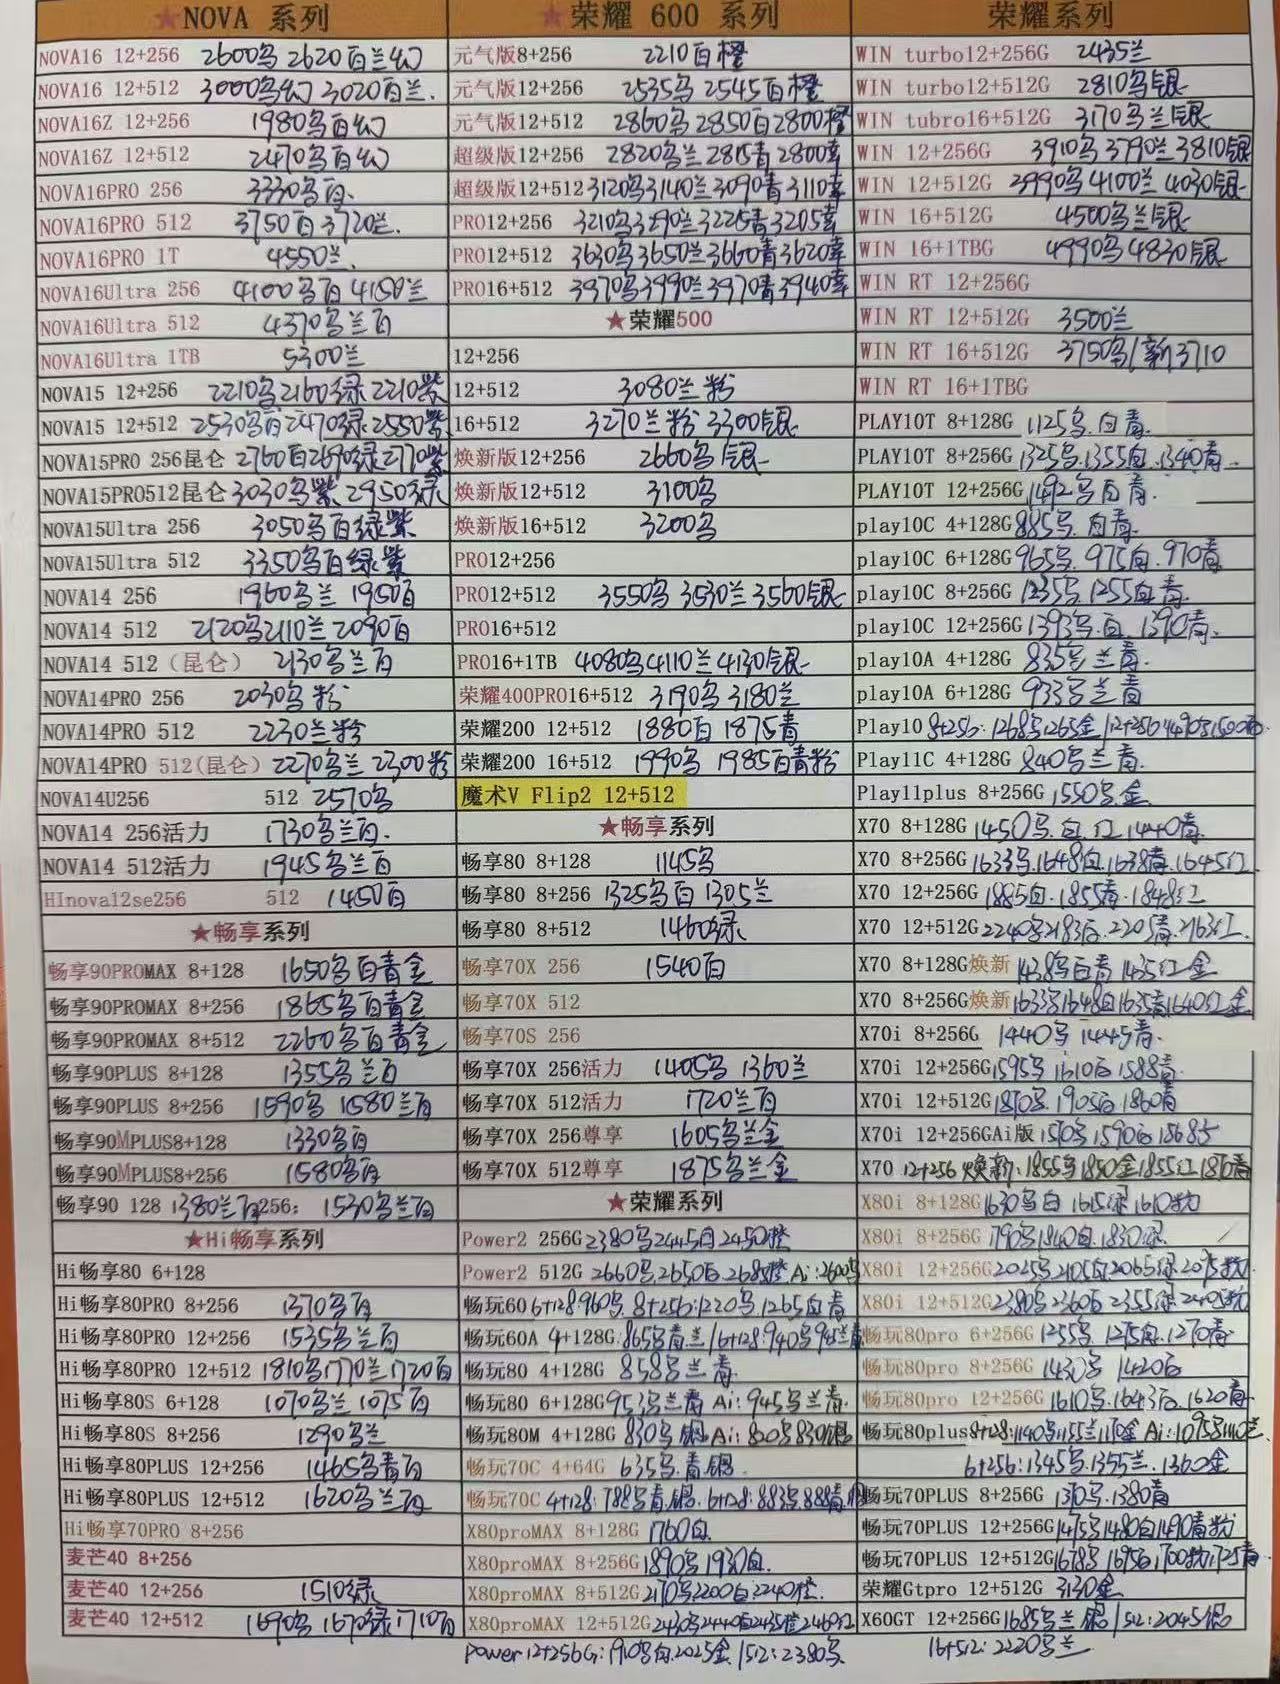 ★NOVA 系列
NOVA16 12+256 2600乌 2620百兰幻
NOVA16 12+512 3000乌幻 3020百兰.
NOVA16Z 12+256 1980乌百幻
NOVA16Z 12+512 2470乌百幻
NOVA16PRO 256 3330乌百.
NOVA16PRO 512 3750百 3720兰.
NOVA16PRO 1T 4550兰.
NOVA16Ultra 256 4100乌百 4150兰
NOVA16Ultra 512 4370乌兰百
NOVA16Ultra 1TB 5300兰
NOVA15 12+256 2210乌2160绿 2210紫
NOVA15 12+512 2530乌百2470绿2550紫
NOVA15PRO 256昆仑 2760百2690绿2770紫
NOVA15PRO512昆仑 3030乌紫 2950绿
NOVA15Ultra 256 3050乌百绿紫
NOVA15Ultra 512 3350乌百绿紫
NOVA14 256 1960乌兰 1950百
NOVA14 512 2120乌2110兰2090百
NOVA14 512（昆仑） 2130乌兰百
NOVA14PRO 256 2030乌粉
NOVA14PRO 512 2230兰粉
NOVA14PRO 512(昆仑) 2270乌兰 2300粉
NOVA14U256 512 2570乌
NOVA14 256活力 1730乌兰百.
NOVA14 512活力 1945乌兰百
HInova12se256 512 1450百
★畅享系列
畅享90PROMAX 8+128 1650乌百青金
畅享90PROMAX 8+256 1865乌百青金
畅享90PROMAX 8+512 2260乌百青金
畅享90PLUS 8+128 1355乌兰百
畅享90PLUS 8+256 1590乌 1580兰百
畅享90MPLUS8+128 1330乌百
畅享90MPLUS8+256 1580乌百
畅享90 128 1380兰百256: 1530乌兰百
★Hi畅享系列
Hi畅享80 6+128
Hi畅享80PRO 8+256 1370乌百
Hi畅享80PRO 12+256 1535乌兰百
Hi畅享80PRO 12+512 1810乌1770兰1720百
Hi畅享80S 6+128 1070乌兰 1075百
Hi畅享80S 8+256 1290乌兰
Hi畅享80PLUS 12+256 1465乌青百
Hi畅享80PLUS 12+512 1620乌兰百
Hi畅享70PRO 8+256
麦芒40 8+256
麦芒40 12+256 1510绿
麦芒40 12+512 1690乌 1670绿 1710百
★荣耀 600 系列
元气版8+256 2210百橙
元气版12+256 2535乌 2545百橙
元气版12+512 2860乌2850百2800橙
超级版12+256 2820乌兰2815青2800幸
超级版12+512 3120乌3140兰3090青3110幸
PRO12+256 3210乌3290兰3225青3205幸
PRO12+512 3630乌3650兰3660青3620幸
PRO16+512 3970乌3990兰3970青3940幸
★荣耀500
12+256
12+512 3080兰粉
16+512 3270兰粉 3300银
焕新版12+256 2660乌银
焕新版12+512 3100乌
焕新版16+512 3200乌
PRO12+256
PRO12+512 3550乌 3530兰3560银
PRO16+512
PRO16+1TB 4080乌4110兰4130银
荣耀400PRO16+512 3190乌3180兰
荣耀200 12+512 1880百 1875青
荣耀200 16+512 1990乌 1985百青粉
魔术V Flip2 12+512
★畅享系列
畅享80 8+128 1145乌
畅享80 8+256 1325乌百 1305兰
畅享80 8+512 1460绿
畅享70X 256 1540百
畅享70X 512
畅享70S 256
畅享70X 256活力 1405乌 1360兰
畅享70X 512活力 1720兰百
畅享70X 256尊享 1605乌兰金
畅享70X 512尊享 1875乌兰金
★荣耀系列
Power2 256G 2380乌2445白2450橙
Power2 512G 2660乌.2650白.2685橙 Ai:2600乌
畅玩60 6+128:960乌. 8+256:1220乌.1265白青
畅玩60A 4+128G:865乌青.兰/6+128:940乌945兰青
畅玩80 4+128G 858乌兰青
畅玩80 6+128G953乌兰青 Ai:945乌兰青.
畅玩80M 4+128G 830乌银 Ai:800乌830银
畅玩70C 4+64G 635乌.青.银.
畅玩70C 4+128:788乌青.银.6+128:883乌.888青.银
X80proMAX 8+128G 1760白.
X80proMAX 8+256G1890乌1930白.
X80proMAX 8+512G2170乌2200白2240橙.
X80proMAX 12+512G2430乌2440白2435橙2460红
power12+256G:1910乌白.2025金 /512:2380乌
荣耀系列
WIN turbo12+256G 2435兰
WIN turbo12+512G 2810乌银
WIN tubro16+512G 3170乌兰银
WIN 12+256G 3910乌3790兰3810银
WIN 12+512G 3990乌4100兰4030银
WIN 16+512G 4500乌兰银
WIN 16+1TBG 4990乌4830银
WIN RT 12+256G
WIN RT 12+512G 3500兰
WIN RT 16+512G 3750乌/新3710
WIN RT 16+1TBG
PLAY10T 8+128G 1125乌.白青.
PLAY10T 8+256G 1325乌.1355白.1340青.
PLAY10T 12+256G 1492乌白青.
play10C 4+128G 885乌.白青.
play10C 6+128G 965乌. 975白.970青
play10C 8+256G 1235乌 1255白青.
play10C 12+256G 1393乌.白. 1390青.
play10A 4+128G 835乌兰青.
play10A 6+128G 933乌兰青
Play10 8+256:1268乌1265金/12+256:1490乌1500白
Play11C 4+128G 840乌兰青.
Play11plus 8+256G 1550乌.金
X70 8+128G 1450乌.白.红1440青.
X70 8+256G 1633乌.1648白.1638青.1645红
X70 12+256G 1885白.1855青.1848红
X70 12+512G2240乌2183白.2205青.2163红.
X70 8+128G焕新 1438乌白青 1435红金
X70 8+256G焕新1633乌1648白1635青1640红金
X70i 8+256G 1440乌 1445青.
X70i 12+256G1595乌 1610白1588青.
X70i 12+512G1870乌.1905白1860青
X70i 12+256GAi版 1570乌1590白1568青
X70 12+256焕新:1855乌1850金1855红1870青
X80i 8+128G1630乌白 1615绿1610粉
X80i 8+256G 1790乌1840白.1830绿
X80i 12+256G2025乌2105白2065绿2075粉
X80i 12+512G2380乌2360白2355绿2405粉
畅玩80pro 6+256G 1255乌.1275白.1270青.
畅玩80pro 8+256G 1430乌 1420白
畅玩80pro 12+256G 1610乌.1643白.1620青.
畅玩80plus8+128:1140乌1155兰1170金 Ai:1095乌1110兰
6+256:1345乌.1355兰.1360金
畅玩70PLUS 8+256G 1370乌.1380青
畅玩70PLUS 12+256G1475乌1480白1490青粉
畅玩70PLUS 12+512G1678乌 1695白1700粉1725青
荣耀Gtpro 12+512G 3130金
X60GT 12+256G1685乌兰 银/512:2045银
16+512:2220乌兰